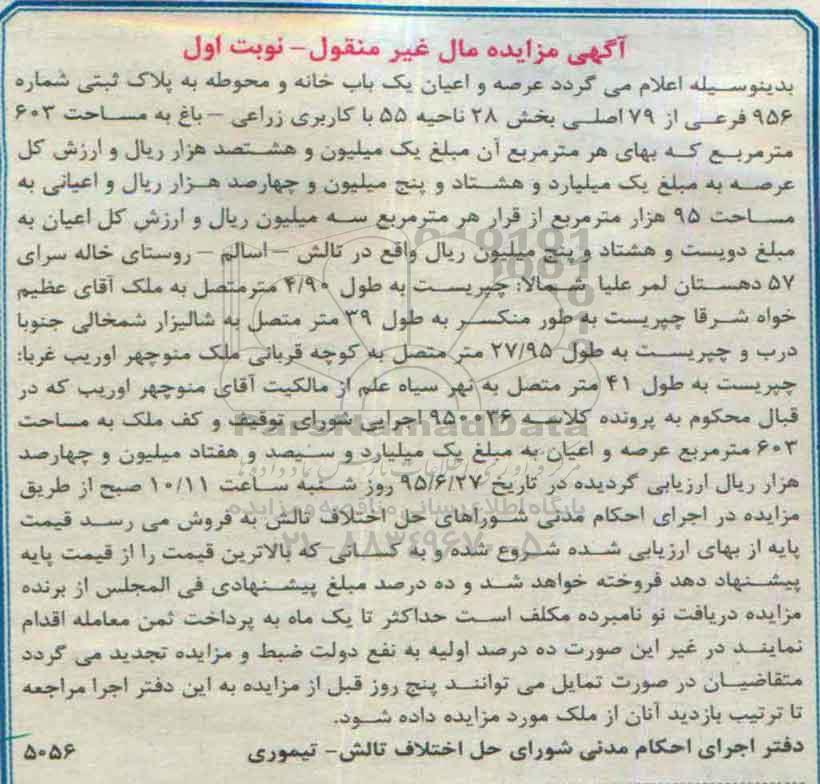 آگهی مزایده مال غیر منقول- نوبت اول
بدینوسیله اعلام می گردد عرصه و اعیان یک باب خانه و محوطه به پلاک ثبتی شماره
۹۵۶ فرعی از ۷۹ اصلی بخش ۲۸ ناحیه ۵۵ با کاربری زراعی – باغ به مساحت ۶۰۳
مترمربع که بهای هر مترمربع آن مبلغ یک میلیون و هشتصد هزار ریال و ارزش کل
عرصه به مبلغ یک میلیارد و هشتاد و پنج میلیون و چهارصد هزار ریال و اعیانی به
مساحت ۹۵ هزار مترمربع از قرار هر مترمربع سه میلیون ریال و ارزش کل اعیان به
مبلغ دویست و هشتاد و پنج میلیون ریال واقع در تالش – اسالم – روستای خاله سرای
۵۷ دهستان لمر علیا شمالا: چپریست به طول ۴/۹۰ مترمتصل به ملک آقای عظیم
خواه شرقا چپریست به طور منکسر به طول ۳۹ متر متصل به شالیزار شمخالی جنوبا
درب و چپریست به طول ۲۷/۹۵ متر متصل به کوچه قربانی ملک منوچهر اوریب غربا:
چپریست به طول ۴۱ متر متصل به نهر سیاه علم از مالکیت آقای منوچهر اوریب که در
قبال محکوم به پرونده کلاسه ۹۵۰۰۳۶ اجرایی شورای توقیف و کف ملک به مساحت
۶۰۳ مترمربع عرصه و اعیان به مبلغ یک میلیارد و سیصد و هفتاد میلیون و چهارصد
هزار ریال ارزیابی گردیده در تاریخ ۹۵/۶/۲۷ روز شنبه ساعت ۱۰/۱۱ صبح از طریق
مزایده در اجرای احکام مدنی شوراهای حل اختلاف تالش به فروش می رسد قیمت
پایه از بهای ارزیابی شده شروع شده و به کسانی که بالاترین قیمت را از قیمت پایه
پیشنهاد دهد فروخته خواهد شد و ده درصد مبلغ پیشنهادی فی المجلس از برنده
مزایده دریافت نو نامبرده مکلف است حداکثر تا یک ماه به پرداخت ثمن معامله اقدام
نمایند در غیر این صورت ده درصد اولیه به نفع دولت ضبط و مزایده تجدید می گردد
متقاضیان در صورت تمایل می توانند پنج روز قبل از مزایده به این دفتر اجرا مراجعه
تا ترتیب بازدید آنان از ملک مورد مزایده داده شود.
دفتر اجرای احکام مدنی شورای حل اختلاف تالش- تیموری ۵۰۵۶
ParsNamadData
پایگاه اطلاع رسانی مناقصه و مزایده
۰۲۱-۸۸۳۴۹۶۷۰-۵